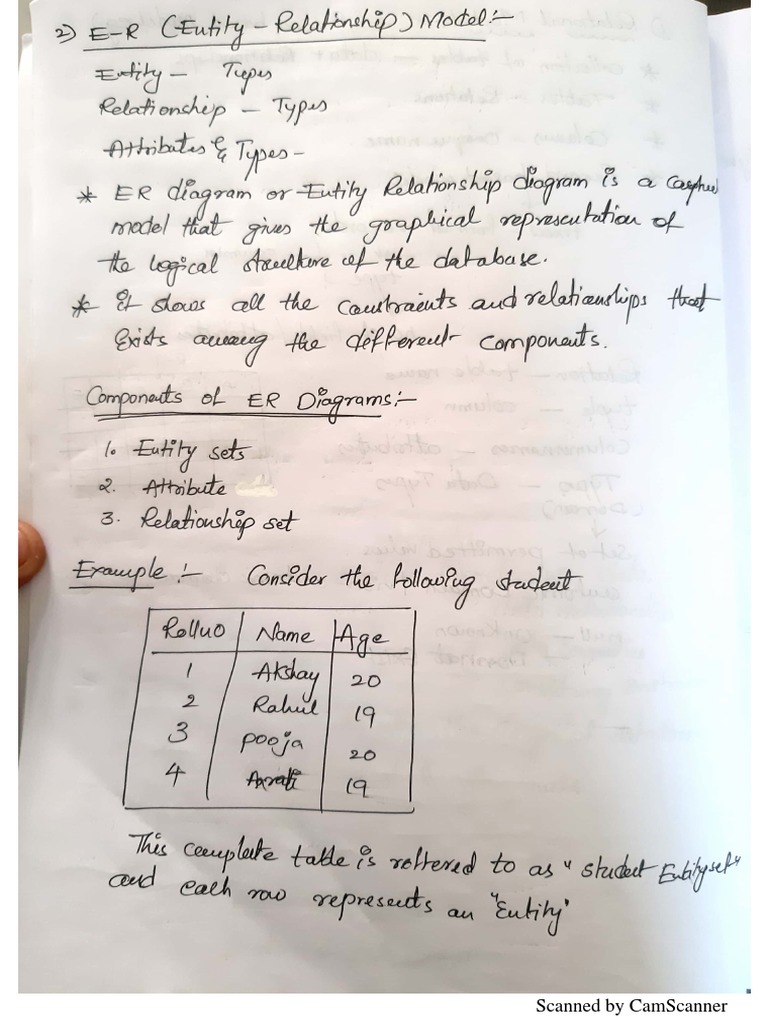 2) E-R (Entity - Relationship) Model:-
Entity - Types
Relationship - Types
Attributes & Types -
* ER diagram or Entity Relationship diagram is a
model that gives the graphical representation of
the logical structure of the database.
* It shows all the constraints and relationships that
Exists among the different components.
Components of ER Diagrams:-
1. Entity sets
2. Attribute
3. Relationship set
Example :- Consider the following student
Rollno Name Age
1 Akshay 20
2 Rahul 19
3 Pooja 20
4 19
This complete table is reffered to as "student Entityset"
and each row represents an "Entity"
Scanned by CamScanner